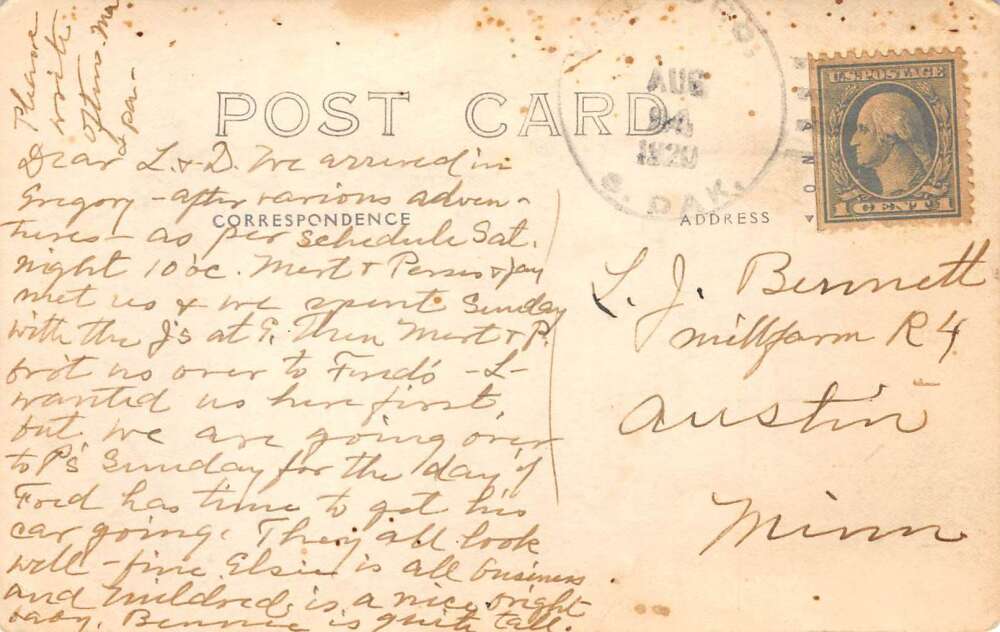 Please
write
often. Ma
& pa-
POST CARD
AUG
1920
S. DAK.
U.S. POSTAGE
1 CENT 1
CORRESPONDENCE
ADDRESS
Dear L. & D. We arrived in
Gregory - after various adven-
tures - as per schedule Sat.
night 10 oc. Mert & Perses & Jay
met us & we spent Sunday
with the J's at G. Then Mert & P.
brot us over to Fred's - L -
wanted us here first,
but we are going over
to P's Sunday for the day if
Fred has time to get his
car going. They all look
well - fine. Elsie is all business
and Mildred is a nice bright
baby. Bennie is quite tall.
L. J. Bennett
Millfarm R 4
Austin
Minn